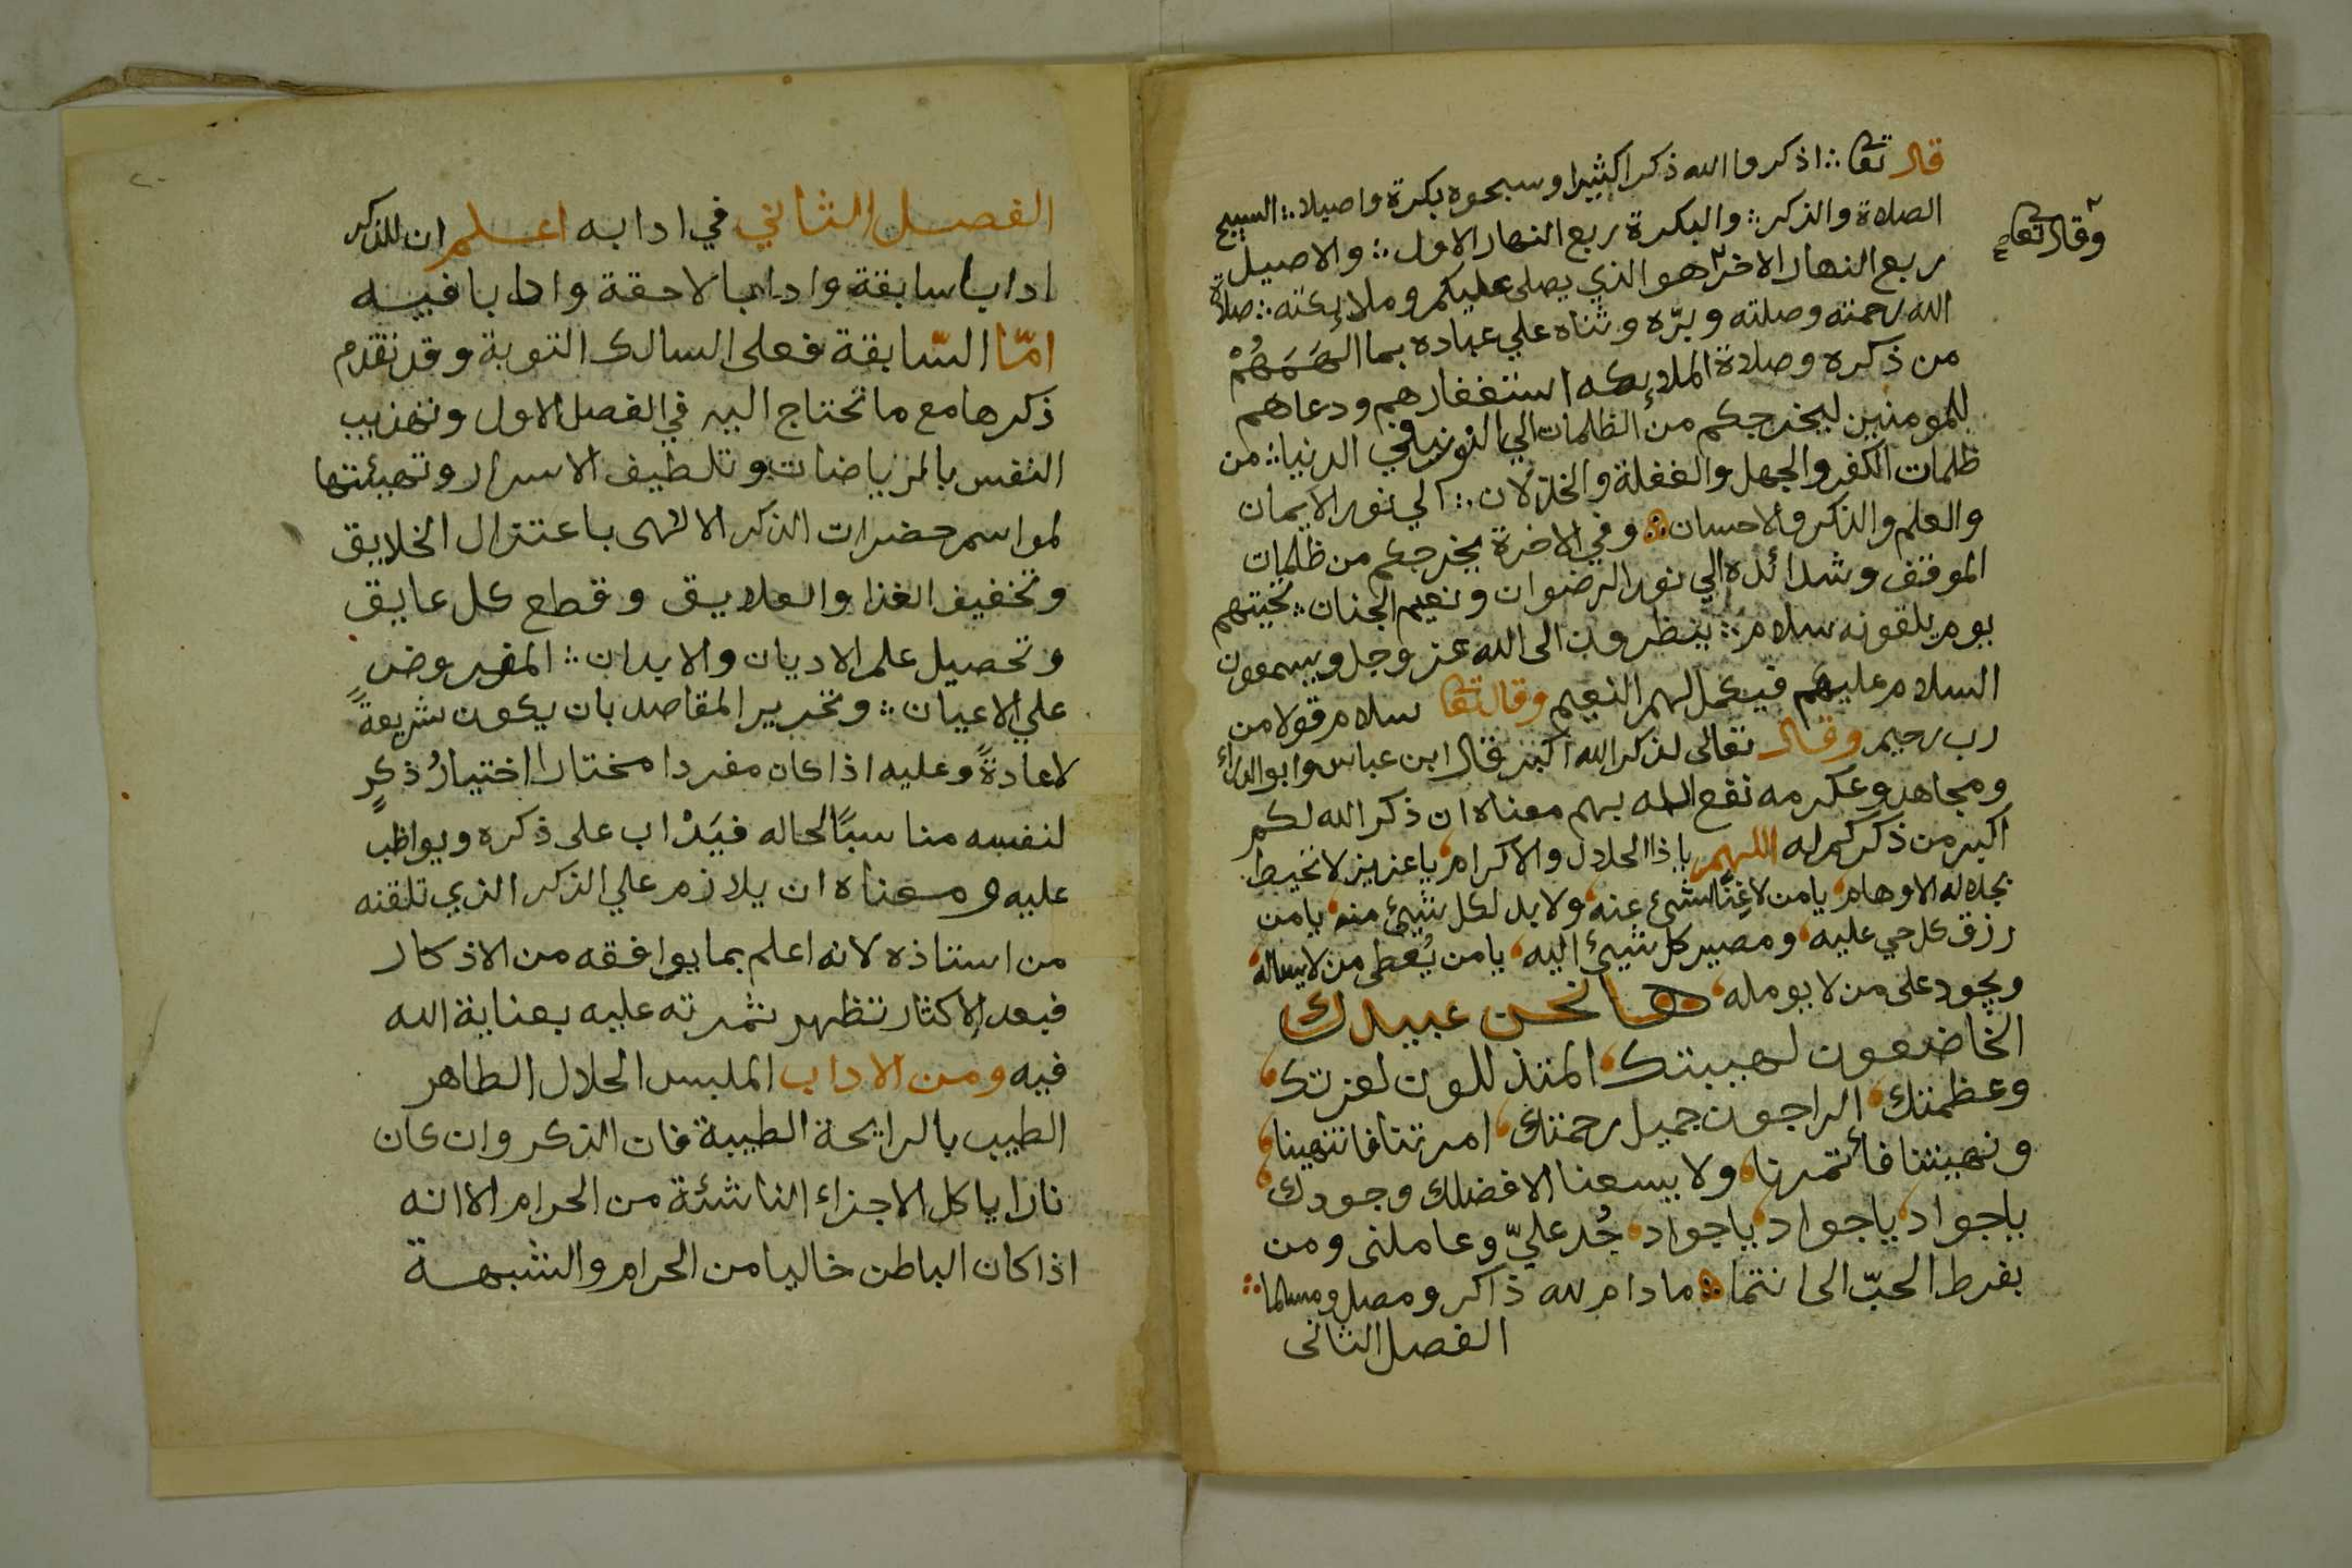 قال تعا ∴ اذكروا الله ذكرا كثيرا وسبحوه بكرة واصيلا ∴ السبيح
وقال تعا
الصلاة والذكر ∴ والبكرة ربع النهار الاول ∴ والاصيل
ربع النهار الاخر هو الذي يصلى عليكم وملائكته ∴ صلاة
الله رحمته وصلته وبرّه وثناه علي عباده بما الهَمَهُمْ
من ذكره وصلاة الملائكه استغفارهم ودعاهم
للمومنين ليخرجكم من الظلمات الي النور في الدنيا ∴ من
ظلمات الكفر والجهل والغفلة والخذلان ∴ الي نور الايمان
والعلم والذكر والاحسان ∴ وفي الاخرة يخرجكم من ظلمات
الموقف وشدائده الي نور الرضوان ونعيم الجنان ∴ تحيتهم
يوم يلقونه سلام ∴ ينظرون الى الله عز وجل ويسمعون
السلام عليكم فيكمل لهم النعيم وقال تعا سلام قولا من
رب رحيم وقال تعالى لذكر الله اكبر قال ابن عباس وابو الدرداء
ومجاهد وعكرمه نفع الله بهم معناه ان ذكر الله لكم
اكبر من ذكركم له اللهم يا ذا الجلال والاكرام يا عزيز لا تحيط
بجلاله الاوهام يا من لا غِنًا لشئ عنه ولا بد لكل شيئ منه يا من
رزق كل حي عليه ومصير كل شيئ اليه يا من يُعطى من لا يساله
ويجود على من لا يومله ها نحن عبيدك
الخاضعون لهيبتك المتذللون لعزتك
وعظمتك الراجون جميل رحمتك امرتنا فانتهينا
ونهيتنا فأتمرنا ولا يسعنا الا فضلك وجودك
يا جواد يا جواد يا جواد جُد عليّ وعاملنى ومن
بفرط الحبّ الى انتما ∴ ما دام لله ذاكر ومصل ومسلما ∴
الفصل الثانى
٢٠
الفصل الثاني في ادابه اعلم ان للذكر
ادابا سابقة وادابا لاحقة وادابا فيه
امّا السّابقة فعلى السالك التوبة وقد تقدم
ذكرها مع ما تحتاج اليه في الفصل الاول وتهذيب
النفس بالرياضات وتلطيف الاسرار وتهيئتها
لمواسم حضرات الذكر الالهى باعتزال الخلايق
وتخفيف الغذا والعلايق وقطع كل عايق
وتحصيل علم الاديان والابدان ∴ المفروض
علي الاعيان ∴ وتحرير المقاصد بان يكون شريعةً
لا عادةً وعليه اذا كان مفردا مختارا اختيارُ ذكرٍ
لنفسه مناسبًا لحاله فيَدْاب على ذكره ويواظب
عليه ومعناه ان يلازم علي الذكر الذي تلقنه
من استاذه لانه اعلم بما يوافقه من الاذكار
فبعد الاكثار تظهر ثمرته عليه بعناية الله
فيه ومن الاداب الملبس الحلال الطاهر
الطيب بالرايحة الطيبة فان الذكر وان كان
نارا ياكل الاجزاء الناشئة من الحرام الا انه
اذا كان الباطن خاليا من الحرام والشبهة